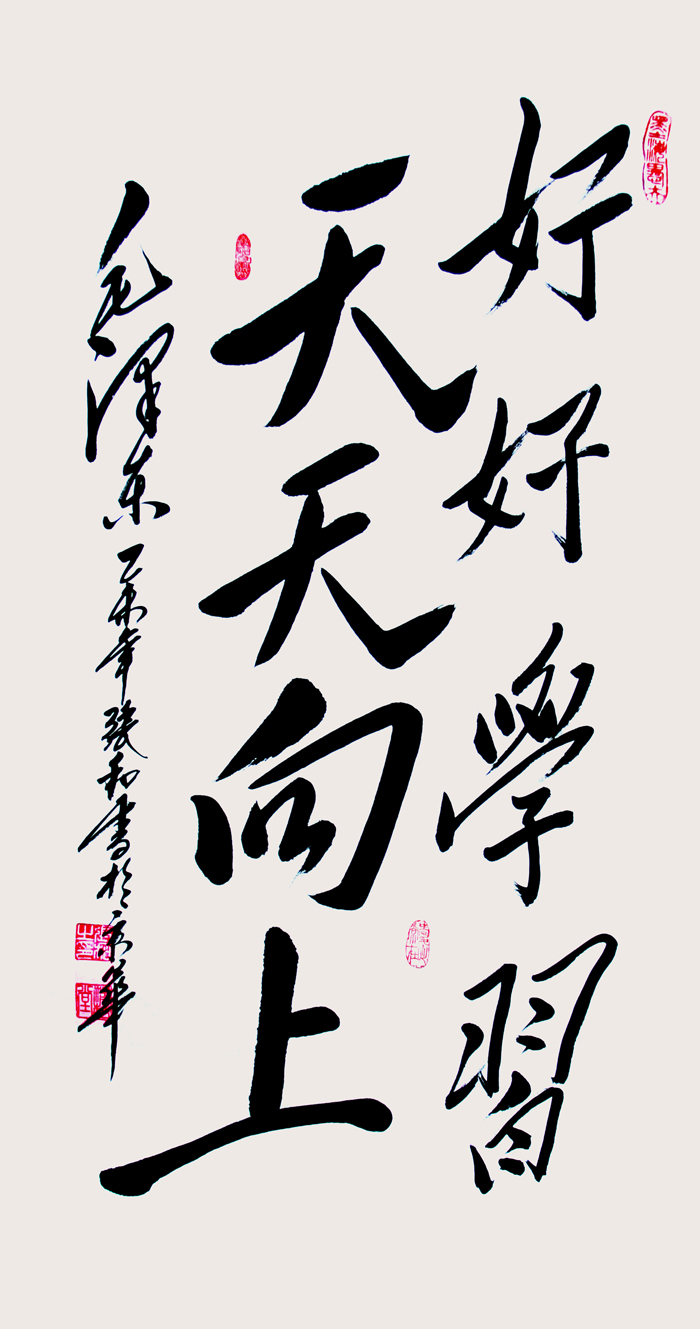 好好學習
天天向上
毛澤东乙未年張和書於京華